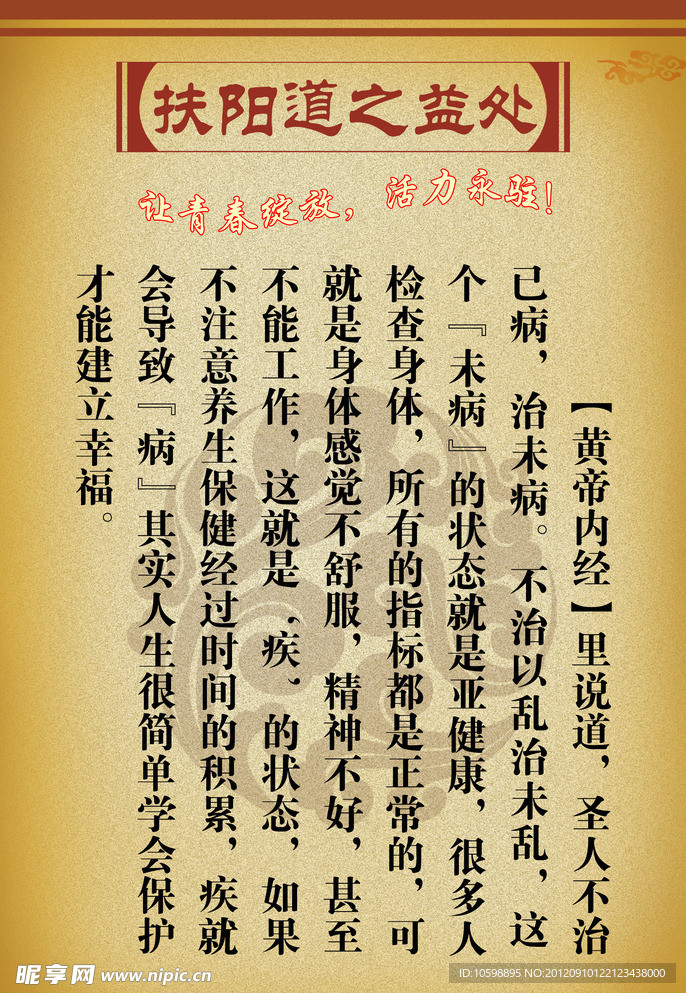 扶阳道之益处
让青春绽放，活力永驻！
【黄帝内经】里说道，圣人不治
已病，治未病。不治以乱治未乱，这
个『未病』的状态就是亚健康，很多人
检查身体，所有的指标都是正常的，可
就是身体感觉不舒服，精神不好，甚至
不能工作，这就是‘疾’的状态，如果
不注意养生保健经过时间的积累，疾就
会导致『病』其实人生很简单学会保护
才能建立幸福。
昵享网 www.nipic.cn
ID:10598895 NO:20120910122123438000